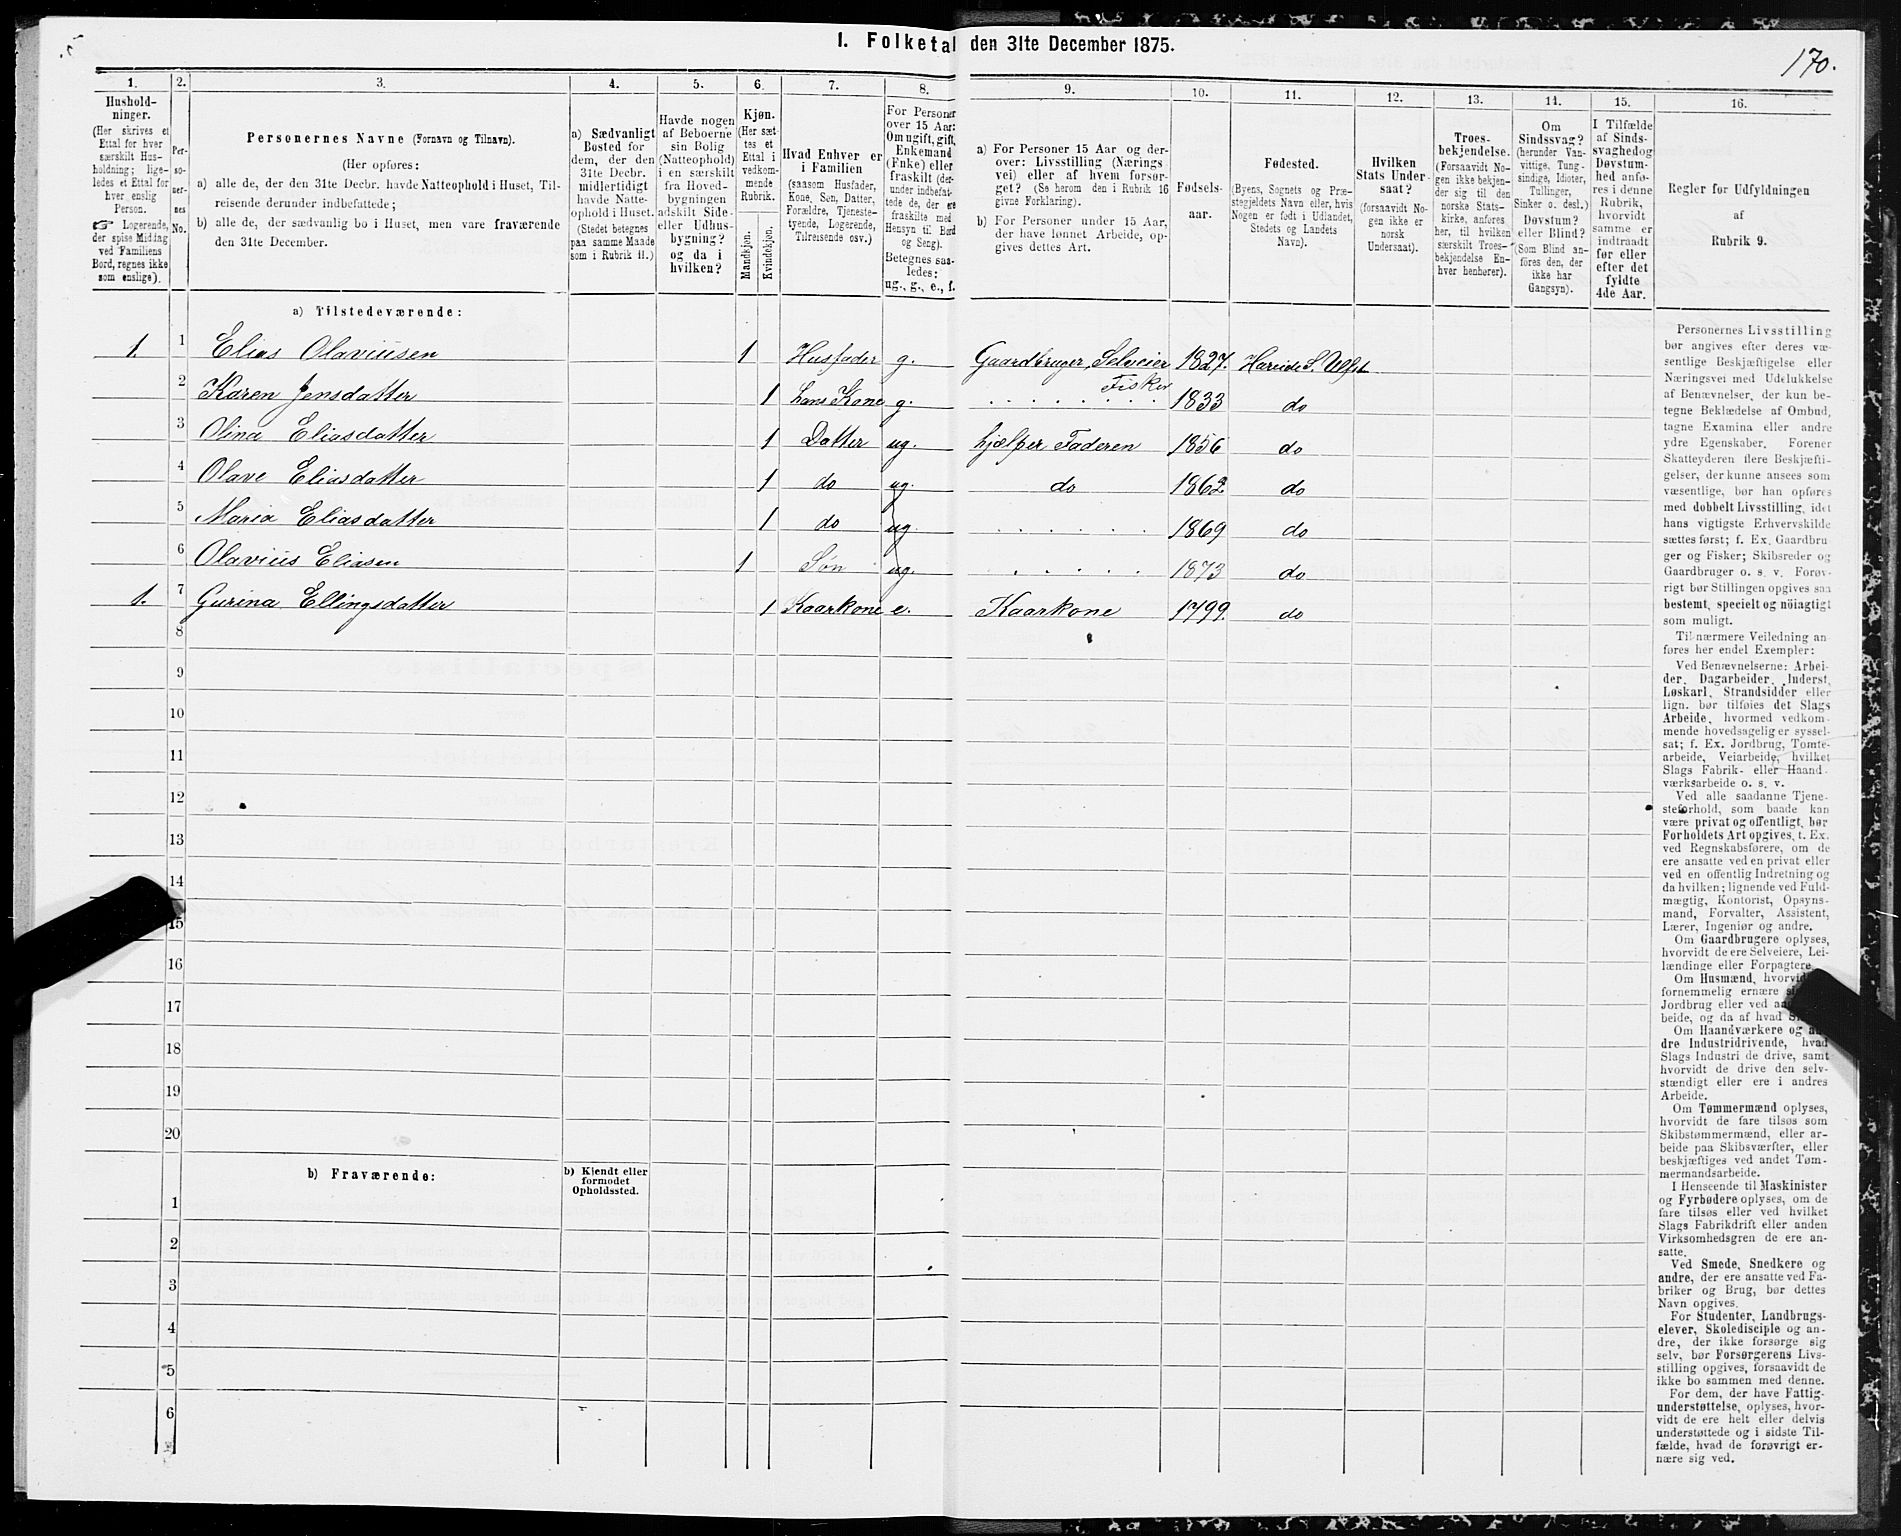 1. Folketal den 31te December 1875.
170.
1.
Hushold-
ninger.
(Her skrives et
Ettal for hver
særskilt Hus-
holdning; lige-
ledes et Ettal for
hver enslig
Person.
☞ Logerende,
der spise Middag
ved Familiens
Bord, regnes ikke
som enslige).
2.
Per-
so-
ner-
nes
No.
3.
Personernes Navne (Fornavn og Tilnavn).
(Her opføres:
a) alle de, der den 31te Decbr. havde Natteophold i Huset, Til-
reisende derunder indbefattede;
b) alle de, der sædvanlig bo i Huset, men vare fraværende
den 31te December.
4.
a) Sædvanligt
Bosted for
dem, der den
31te Decbr.
midlertidigt
havde Natte-
ophold i Huset.
(Stedet betegnes
paa samme Maade
som i Rubrik 11.)
5.
Havde nogen
af Beboerne
sin Bolig
(Natteophold)
i en særskilt
fra Hoved-
bygningen
adskilt Side-
eller Udhus-
bygning?
og da i
hvilken?
6.
Kjøn.
(Her sæt-
tes et
Ettal i
vedkom-
mende
Rubrik.
Mandkjøn.
Kvindekjøn.
7.
Hvad Enhver er
i Familien
(saasom Husfader,
Kone, Søn, Datter,
Forældre, Tjeneste-
tyende, Logerende,
Tilreisende osv.)
8.
For Personer
over 15 Aar:
Om ugift, gift,
Enkemand
(Enke) eller
fraskilt (der-
under indbefat-
tede de, der ere
fraskilte med
Hensyn til Bord
og Seng).
Betegnes saa-
ledes:
ug., g., e., f.
9.
a) For Personer 15 Aar og der-
over: Livsstilling (Nærings
vei) eller af hvem forsør-
get? (Se herom den i Rubrik 16
givne Forklaring).
b) For Personer under 15 Aar,
der have lønnet Arbeide, op-
gives dettes Art.
10.
Fødsels-
aar.
11.
Fødested.
(Byens, Sognets og Præ-
stegjeldets Navn eller, hvis
Nogen er født i Udlandet,
Stedets og Landets
Navn).
12.
Hvilken
Stats Under-
saat?
(forsaavidt No-
gen ikke er
norsk
Undersaat).
13.
Troes-
bekjendelse.
(Forsaavidt No-
gen ikke bekjen-
der sig til den
norske Stats-
kirke, anføres
her, til hvilken
særskilt Troes-
bekjendelse En-
hver henhører).
14.
Om
Sindssvag?
(herunder Van-
vittige, Tung-
sindige, Idioter,
Tullinger,
Sinker o. desl.)
Døvstum?
eller Blind?
(Som Blind an-
føres den, der
ikke har
Gangsyn).
15.
I Tilfælde
af Sinds-
svaghed og
Døvstum-
hed anfø-
res i denne
Rubrik,
hvorvidt
samme er
indtraadt
før eller
efter det
fyldte
4de Aar.
16.
Regler for Udfyldningen
af
Rubrik 9.
a) Tilstedeværende:
1. 1 Elias Olaviusen 1 Husfader g. Gaardbruger, Selveier Fisker 1827. Hareide S. Ulfst
2 Karen Jensdatter 1 hans Kone g. . . . . . . . . 1833 do
3 Olina Eliasdatter 1 Datter ug. hjælper Faderen 1856 do
4 Olave Eliasdatter 1 do ug. do 1862 do
5 Maria Eliasdatter 1 do ug. . . . . . . 1869 do
6 Olavius Eliasen 1 Søn ug. . . . . . . 1873 do
1. 7 Gurina Ellingsdatter 1 Kaarkone e. Kaarkone 1799. do
8
9
10
11
12
13
14
15
16
17
18
19
20
b) Fraværende:
b) Kjendt eller
formodet
Opholdssted.
1
2
3
4
5
6
Personernes Livsstilling
bør angives efter deres væ-
sentlige Beskjæftigelse eller
Næringsvei med Udelukkelse
af Benævnelser, der kun be-
tegne Beklædelse af Ombud,
tagne Examina eller andre
ydre Egenskaber. Forener
Skatteyderen flere Beskjæfti-
gelser, der kunne ansees som
væsentlige, bør han opføres
med dobbelt Livsstilling, idet
hans vigtigste Erhvervskilde
sættes først; f. Ex. Gaardbru
ger og Fisker; Skibsreder og
Gaardbruger o. s. v. Forøv-
rigt bør Stillingen opgives saa
bestemt, specielt og nöiagtigt
som muligt.
Til nærmere Veiledning an
føres her endel Exempler:
Ved Benævnelserne: Arbei-
der, Dagarbeider, Inderst,
Løskarl, Strandsidder eller
lign. bør tilføies det Slags
Arbeide, hvormed vedkom-
mende hovedsagelig er syssel-
sat; f. Ex. Jordbrug, Tomte-
arbeide, Veiarbeide, hvilket
Slags Fabrik- eller Haand-
værksarbeide o. s. v.
Ved alle saadanne Tjene-
steforhold, som baade kan
være privat og offentligt, bør
Forholdets Art opgives, t. Ex.
ved Regnskabsførere, om de
ere ansatte ved en privat eller
ved en offentlig Indretning og
da hvilken; lignende ved Fuld-
mægtig, Kontorist, Opsyns-
mand, Forvalter, Assistent,
Lærer, Ingeniør og andre.
Om Gaardbrugere oplyses,
hvorvidt de ere Selveiere, Lei-
lændinge eller Forpagtere.
Om Husmænd, hvorvidt
fornemmelig ernære
Jordbrug eller ved
beide, og da af hvad
Om Haandværkere og an-
dre Industridrivende, hvad
Slags Industri de drive, samt
hvorvidt de drive den selv-
stændigt eller ere i andres
Arbeide.
Om Tømmermænd oplyses,
hvorvidt de fare tilsøs som
Skibstømmermænd, eller ar-
beide paa Skibsværfter, eller
beskjæftiges ved andet Tøm-
mermandsarbeide.
I Henseende til Maskinister
og Fyrbødere oplyses, om de
fare tilsøs eller ved hvilket
Slags Fabrikdrift eller anden
Virksomhedsgren de ere an-
satte.
Ved Smede, Snedkere og
andre, der ere ansatte ved Fa-
briker og Brug, bør dettes
Navn opgives.
For Studenter, Landbrugs-
elever, Skoledisciple og an-
dre, der ikke forsørge sig
selv, bør Forsørgerens Livs-
stilling opgives, forsaavidt de
ikke bo sammen med denne.
For dem, der have Fattig-
understøttelse, oplyses, hvor-
vidt de ere helt eller delvis
understøttede og i sidste Til-
fælde, hvad de forøvrigt er-
nære sig ved.